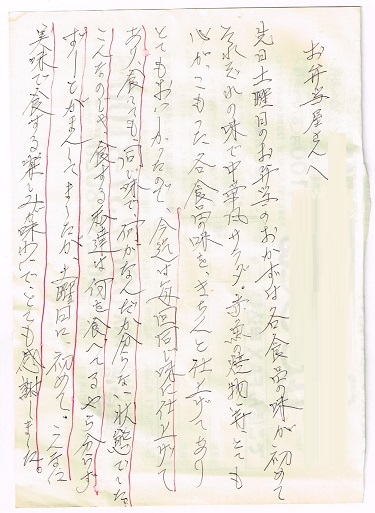 お弁当屋さんへ
先日土曜日のお弁当のおかずは各食品の味が初めて
それぞれの味で中華風サラダ。赤魚の焼物等とても
心がこもった各食品の味を、きちんと仕上げてあり
とてもおいしかったので、今迄は毎回同じ味に仕上げて
あり食べても、同じ味で、何がなんだか分からない状態でした。
こんなのしき食する私達は何を食べてるやら分らず
ずーとがまんしてましたが、土曜日に初めて。こんなに
美味で食する楽しみを味わいとても感謝しました。